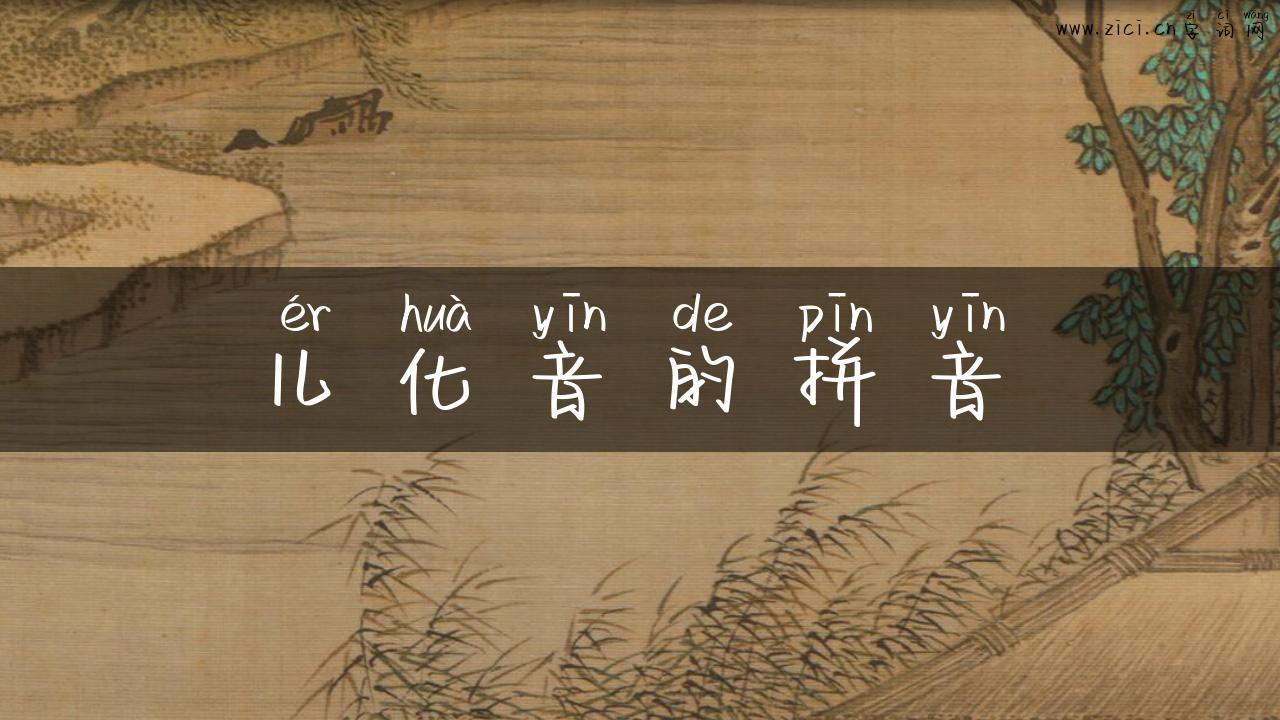 zì cí wǎng
www.zici.cn字词网
ér huà yīn de pīn yīn
儿化音的拼音